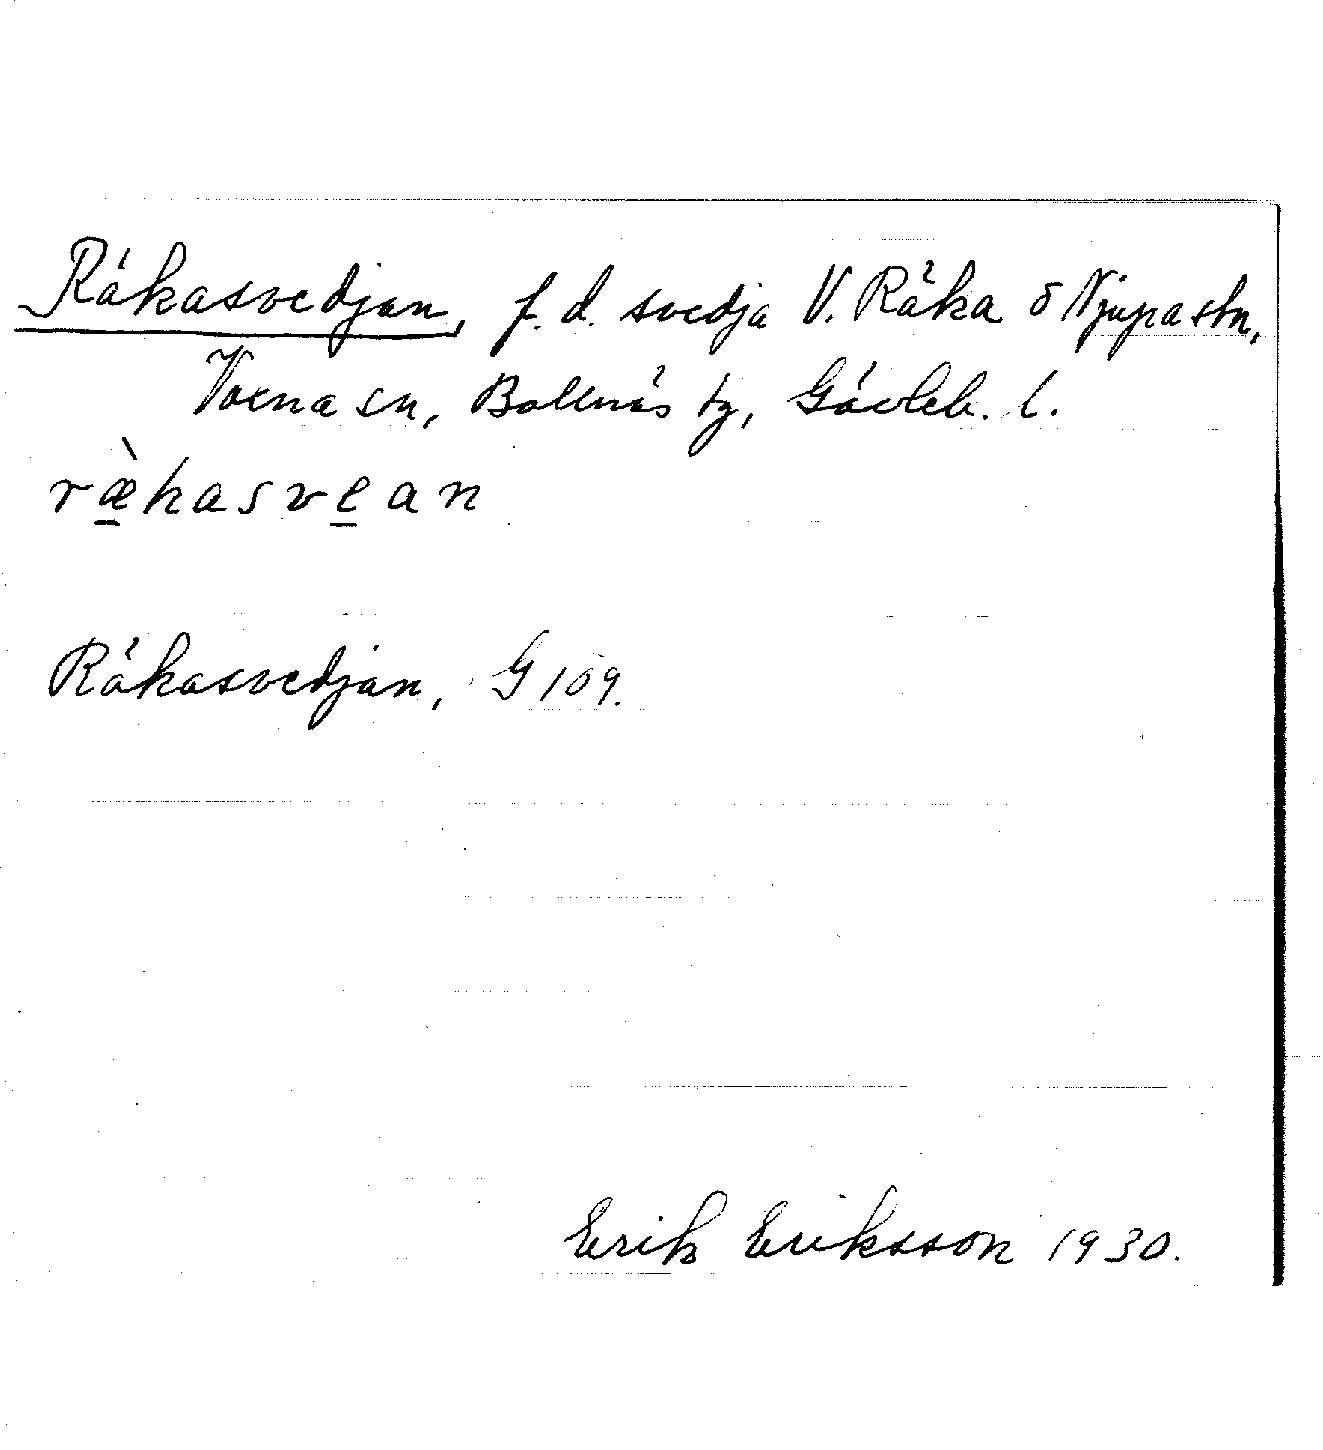 Räkasvedjan, f.d. svedja V. Räka ö Njupa stn,
Voxna sn, Bollnäs tg, Gävleb. l.
ræ̀kasvean
Räkasvedjan, G 109.
Erik Eriksson 1930.